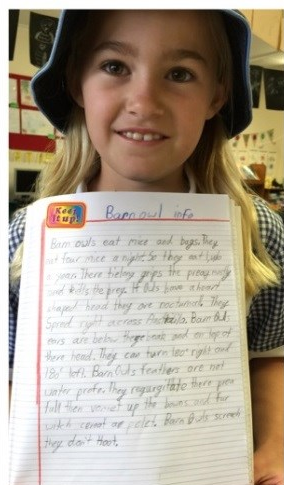 Keep it up!
Barn owl info
Barn owls eat mice and bugs. They
eat four mice a night. So they eat
a year. There grips the prea
and kills the prey. Owls have a heart
shaped head they are nocturnal. They
spred right across Australia. Barn Owls
ears are below there and on top of
there head. They can turn 180° right and
180° left. Barn Owls feathers are not
water profe. They regurgitate there prea
full then vomet up the bowns and fur
witch a pelet. Barn Owls screech
they don't Hoot.